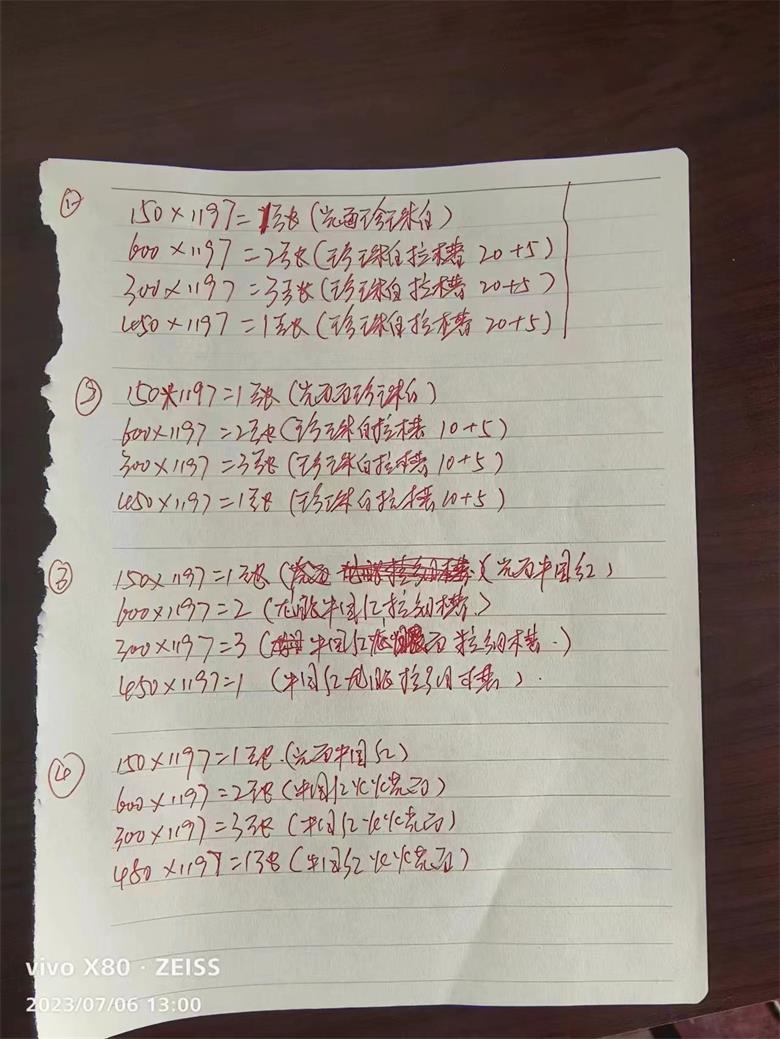 ① 150×1197=1张(光面珍珠白)
600×1197=2张(珍珠白拉槽 20+5)
300×1197=3张(珍珠白拉槽 20+5)
450×1197=1张(珍珠白拉槽 20+5)
② 150×1197=1张(光面珍珠白)
600×1197=2张(珍珠白拉槽 10+5)
300×1197=3张(珍珠白拉槽 10+5)
450×1197=1张(珍珠白拉槽 10+5)
③ 150×1197=1张(光面中国红)
600×1197=2(龙眼中国红拉细槽.)
300×1197=3(中国红 面拉细槽.)
450×1197=1(中国红 拉细槽).
④ 150×1197=1张.(光面中国红)
600×1197=2张(中国红 光面)
300×1197=3张(中国红 光面)
450×1197=1张(中国红 光面)
vivo X80 · ZEISS
2023/07/06 13:00